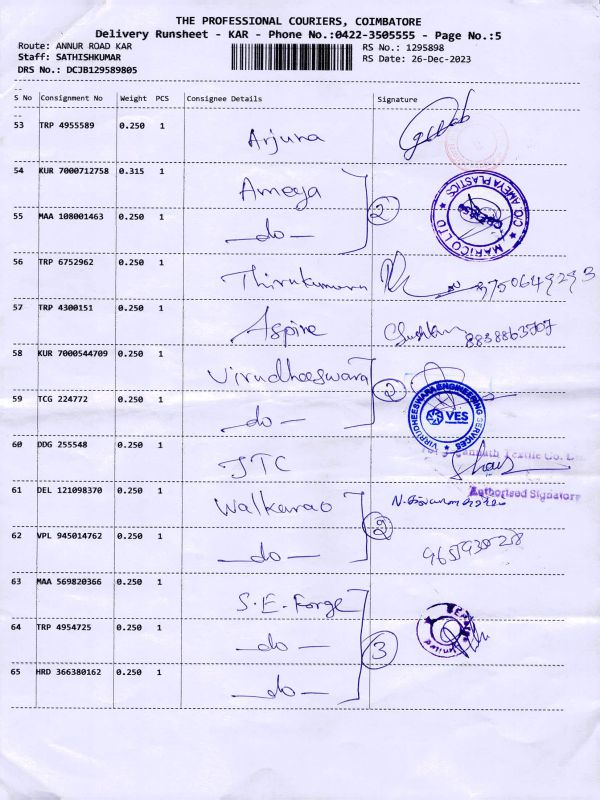 THE PROFESSIONAL COURIERS, COIMBATORE
Delivery Runsheet - KAR - Phone No.:0422-3505555 - Page No.:5
Route: ANNUR ROAD KAR RS No.: 1295898
Staff: SATHISHKUMAR RS Date: 26-Dec-2023
DRS No.: DCJB129589805
S No Consignment No Weight PCS Consignee Details Signature
53 TRP 4955589 0.250 1 Arjuna
54 KUR 7000712758 0.315 1 Ameya
2
MARICO LTD C/O. AMEYA PLASTICS
55 MAA 108001463 0.250 1 -do-
56 TRP 6752962 0.250 1 Thirukumaran 9750649293
57 TRP 4300151 0.250 1 Aspire 8838863707
58 KUR 7000544709 0.250 1 Virudheeswara
2
VIRUDHEESWARA ENGINEERING SERVICES
VES
59 TCG 224772 0.250 1 -do-
60 DDG 255548 0.250 1 JTC
Textile Co.
Authorised Signatory
61 DEL 121098370 0.250 1 Walkarao
2
62 VPL 945014762 0.250 1 -do-
63 MAA 569820366 0.250 1 S.E-Forge
64 TRP 4954725 0.250 1 -do-
3
65 HRD 366380162 0.250 1 -do-